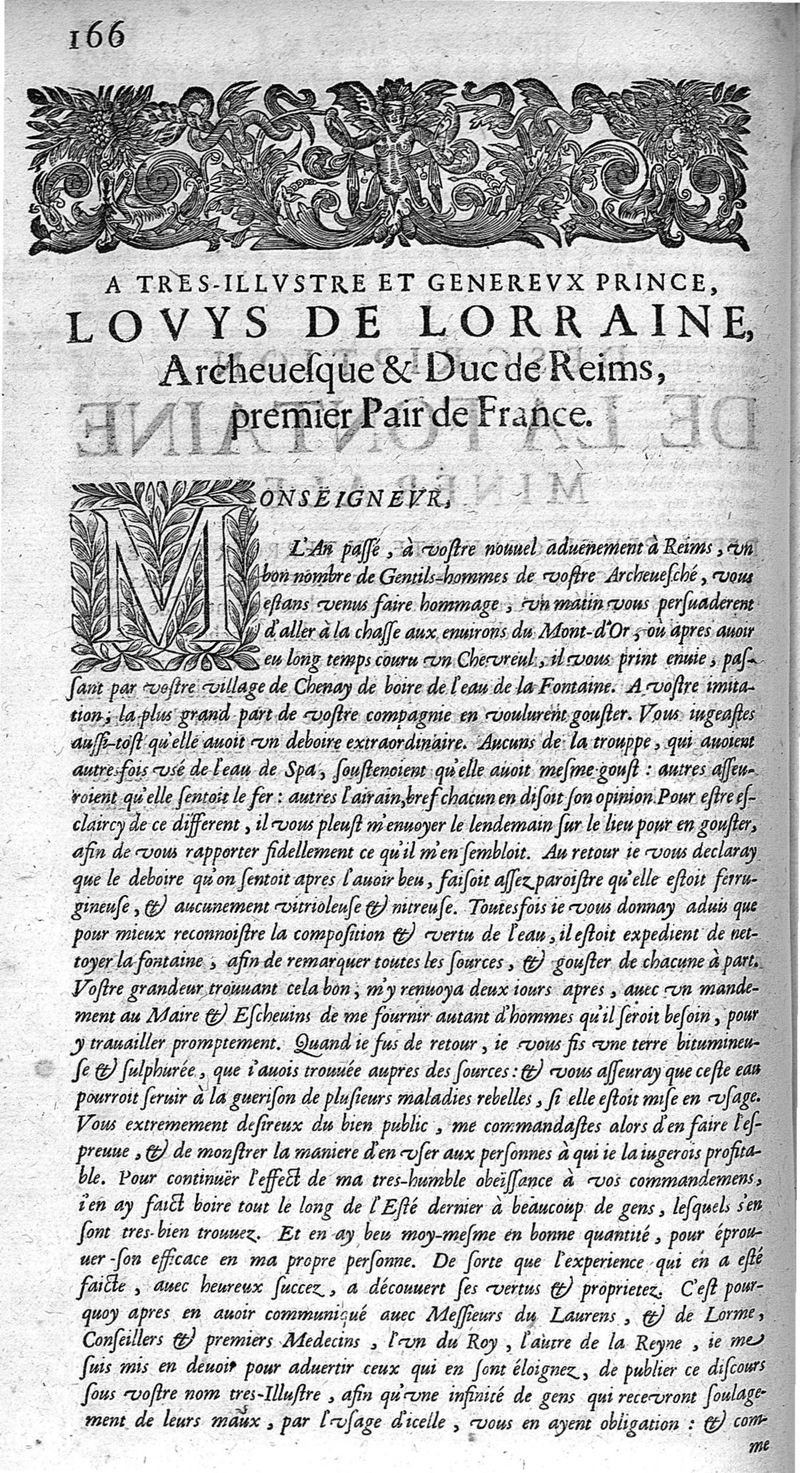 166
A TRES-ILLVSTRE ET GENEREVX PRINCE,
LOVYS DE LORRAINE,
Archeueſque & Duc de Reims,
premier Pair de France.
MONSEIGNEVR,
L'An paſſé, à voſtre nouuel aduenement à Reims, vn
bon nombre de Gentils-hommes de voſtre Archeueſché, vous
eſtans venus faire hommage, vn matin vous perſuaderent
d'aller à la chaſſe aux enuirons du Mont-d'Or, où apres auoir
eu long temps couru vn Cheureul, il vous print enuie, paſ-
ſant par voſtre village de Chenay de boire de l'eau de la Fontaine. A voſtre imita-
tion, la plus grand part de voſtre compagnie en voulurent gouſter. Vous iugeaſtes
auſſi-toſt qu'elle auoit vn deboire extraordinaire. Aucuns de la trouppe, qui auoient
autresfois vsé de l'eau de Spa, ſouſtenoient qu'elle auoit meſme gouſt : autres aſſeu-
roient qu'elle ſentoit le fer : autres l'airain, bref chacun en diſoit ſon opinion. Pour eſtre eſ-
claircy de ce different, il vous pleuſt m'enuoyer le lendemain ſur le lieu pour en gouſter,
afin de vous rapporter fidellement ce qu'il m'en ſembloit. Au retour ie vous declaray
que le deboire qu'on ſentoit apres l'auoir beu, faiſoit aſſez paroiſtre qu'elle eſtoit ferru-
gineuſe, & aucunement vitrioleuſe & nitreuſe. Toutesfois ie vous donnay aduis que
pour mieux reconnoiſtre la compoſition & vertu de l'eau, il eſtoit expedient de net-
toyer la fontaine, afin de remarquer toutes les ſources, & gouſter de chacune à part.
Voſtre grandeur trouuant cela bon, m'y renuoya deux iours apres, auec vn mande-
ment au Maire & Eſcheuins de me fournir autant d'hommes qu'il ſeroit beſoin, pour
y trauailler promptement. Quand ie fus de retour, ie vous fis vne terre bitumineu-
ſe & ſulphurée, que i'auois trouuée aupres des ſources : & vous aſſeuray que ceſte eau
pourroit ſeruir à la gueriſon de pluſieurs maladies rebelles, ſi elle eſtoit miſe en vſage.
Vous extremement deſireux du bien public, me commandaſtes alors d'en faire l'eſ-
preuue, & de monſtrer la maniere d'en vſer aux perſonnes à qui ie la iugerois profita-
ble. Pour continuër l'effect de ma tres-humble obeïſſance à vos commandemens,
i'en ay faict boire tout le long de l'Eſté dernier à beaucoup de gens, leſquels s'en
ſont tres-bien trouuez. Et en ay beu moy-meſme en bonne quantité, pour éprou-
uer ſon efficace en ma propre perſonne. De ſorte que l'experience qui en a eſté
faicte, auec heureux ſuccez, a découuert ſes vertus & proprietez. C'eſt pour-
quoy apres en auoir communiqué auec Meſſieurs du Laurens, & de Lorme,
Conſeillers & premiers Medecins, l'vn du Roy, l'autre de la Reyne, ie me
ſuis mis en deuoir pour aduertir ceux qui en ſont éloignez, de publier ce diſcours
ſous voſtre nom tres-Illuſtre, afin qu'vne infinité de gens qui receuront ſoulage-
ment de leurs maux, par l'vſage d'icelle, vous en ayent obligation : & com-
me